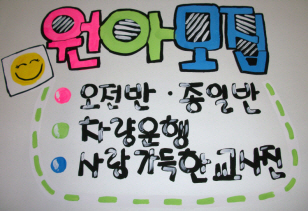 원아모집
오전반·종일반
차량운행
사랑가득한교사진